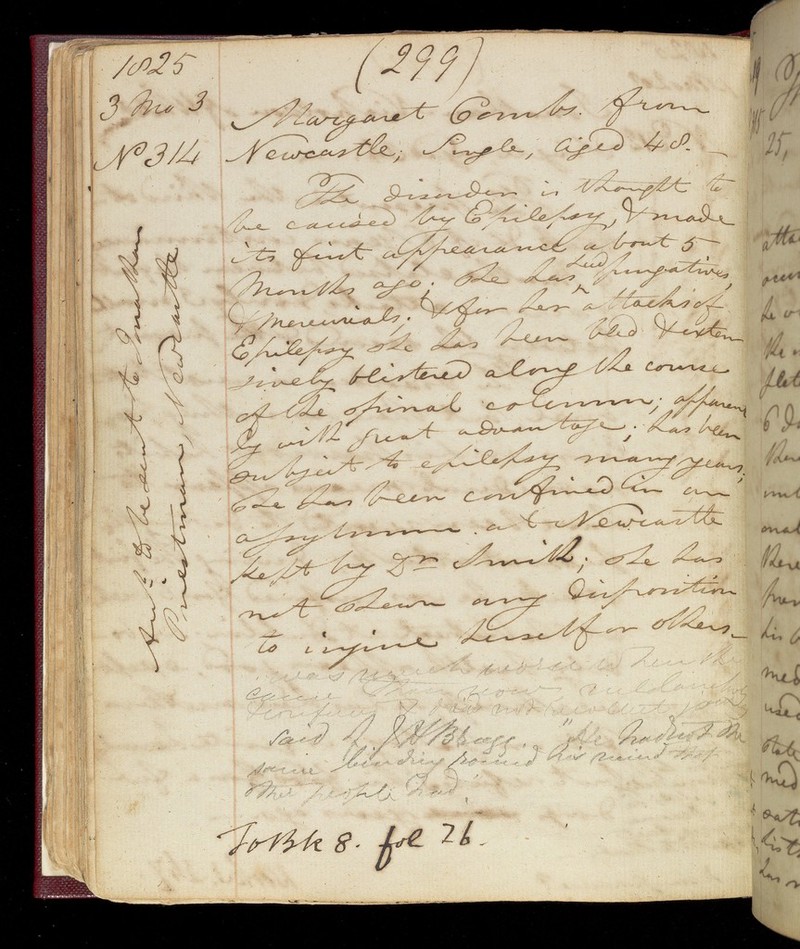 1825
(299)
3 Mo 3
Margaret Combs. from
No 314
Newcastle; Single, aged 48. —
The disorder is thought to
be caused by Epilepsy, & made
its first appearance about 5
Months ago; She has had purgatives,
& mercurials; & for her attacks of
Epilepsy she has been bled & exten
sively blistered along the course
of the spinal column; apparent
ly with great advantage; has been
subject to epilepsy many years;
She has been confined in an
assylumn at Newcastle
kept by Dr Smith; she has
not shewn any disposition
to injure herself or others —
was much worse when she
came than now,
said of J H Bragg. "He had not the
same binding round his mind that
other people had.
To Bk 8. fol 26.
to be sent to Jonathan
Priestman, Newcastle